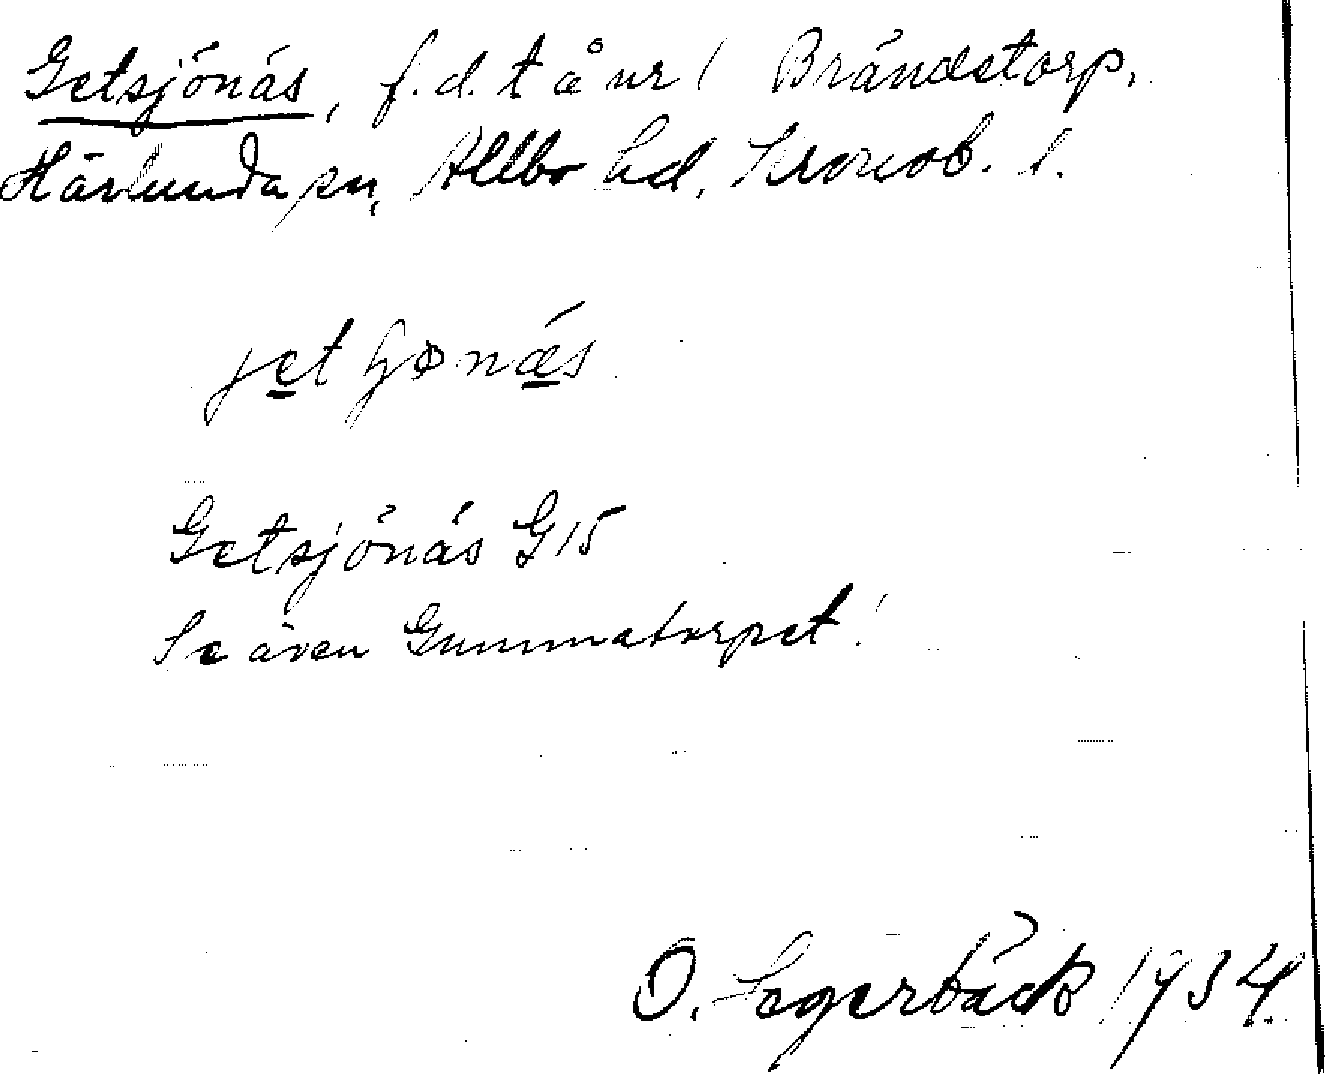 Getsjönäs, f.d. t å nr 1 Brändstorp,
Härlunda sn, Allbo hd, Kronob. l.
Getsjönäs G15
Se även Gummatorpet!
O. Segerbäck 1934